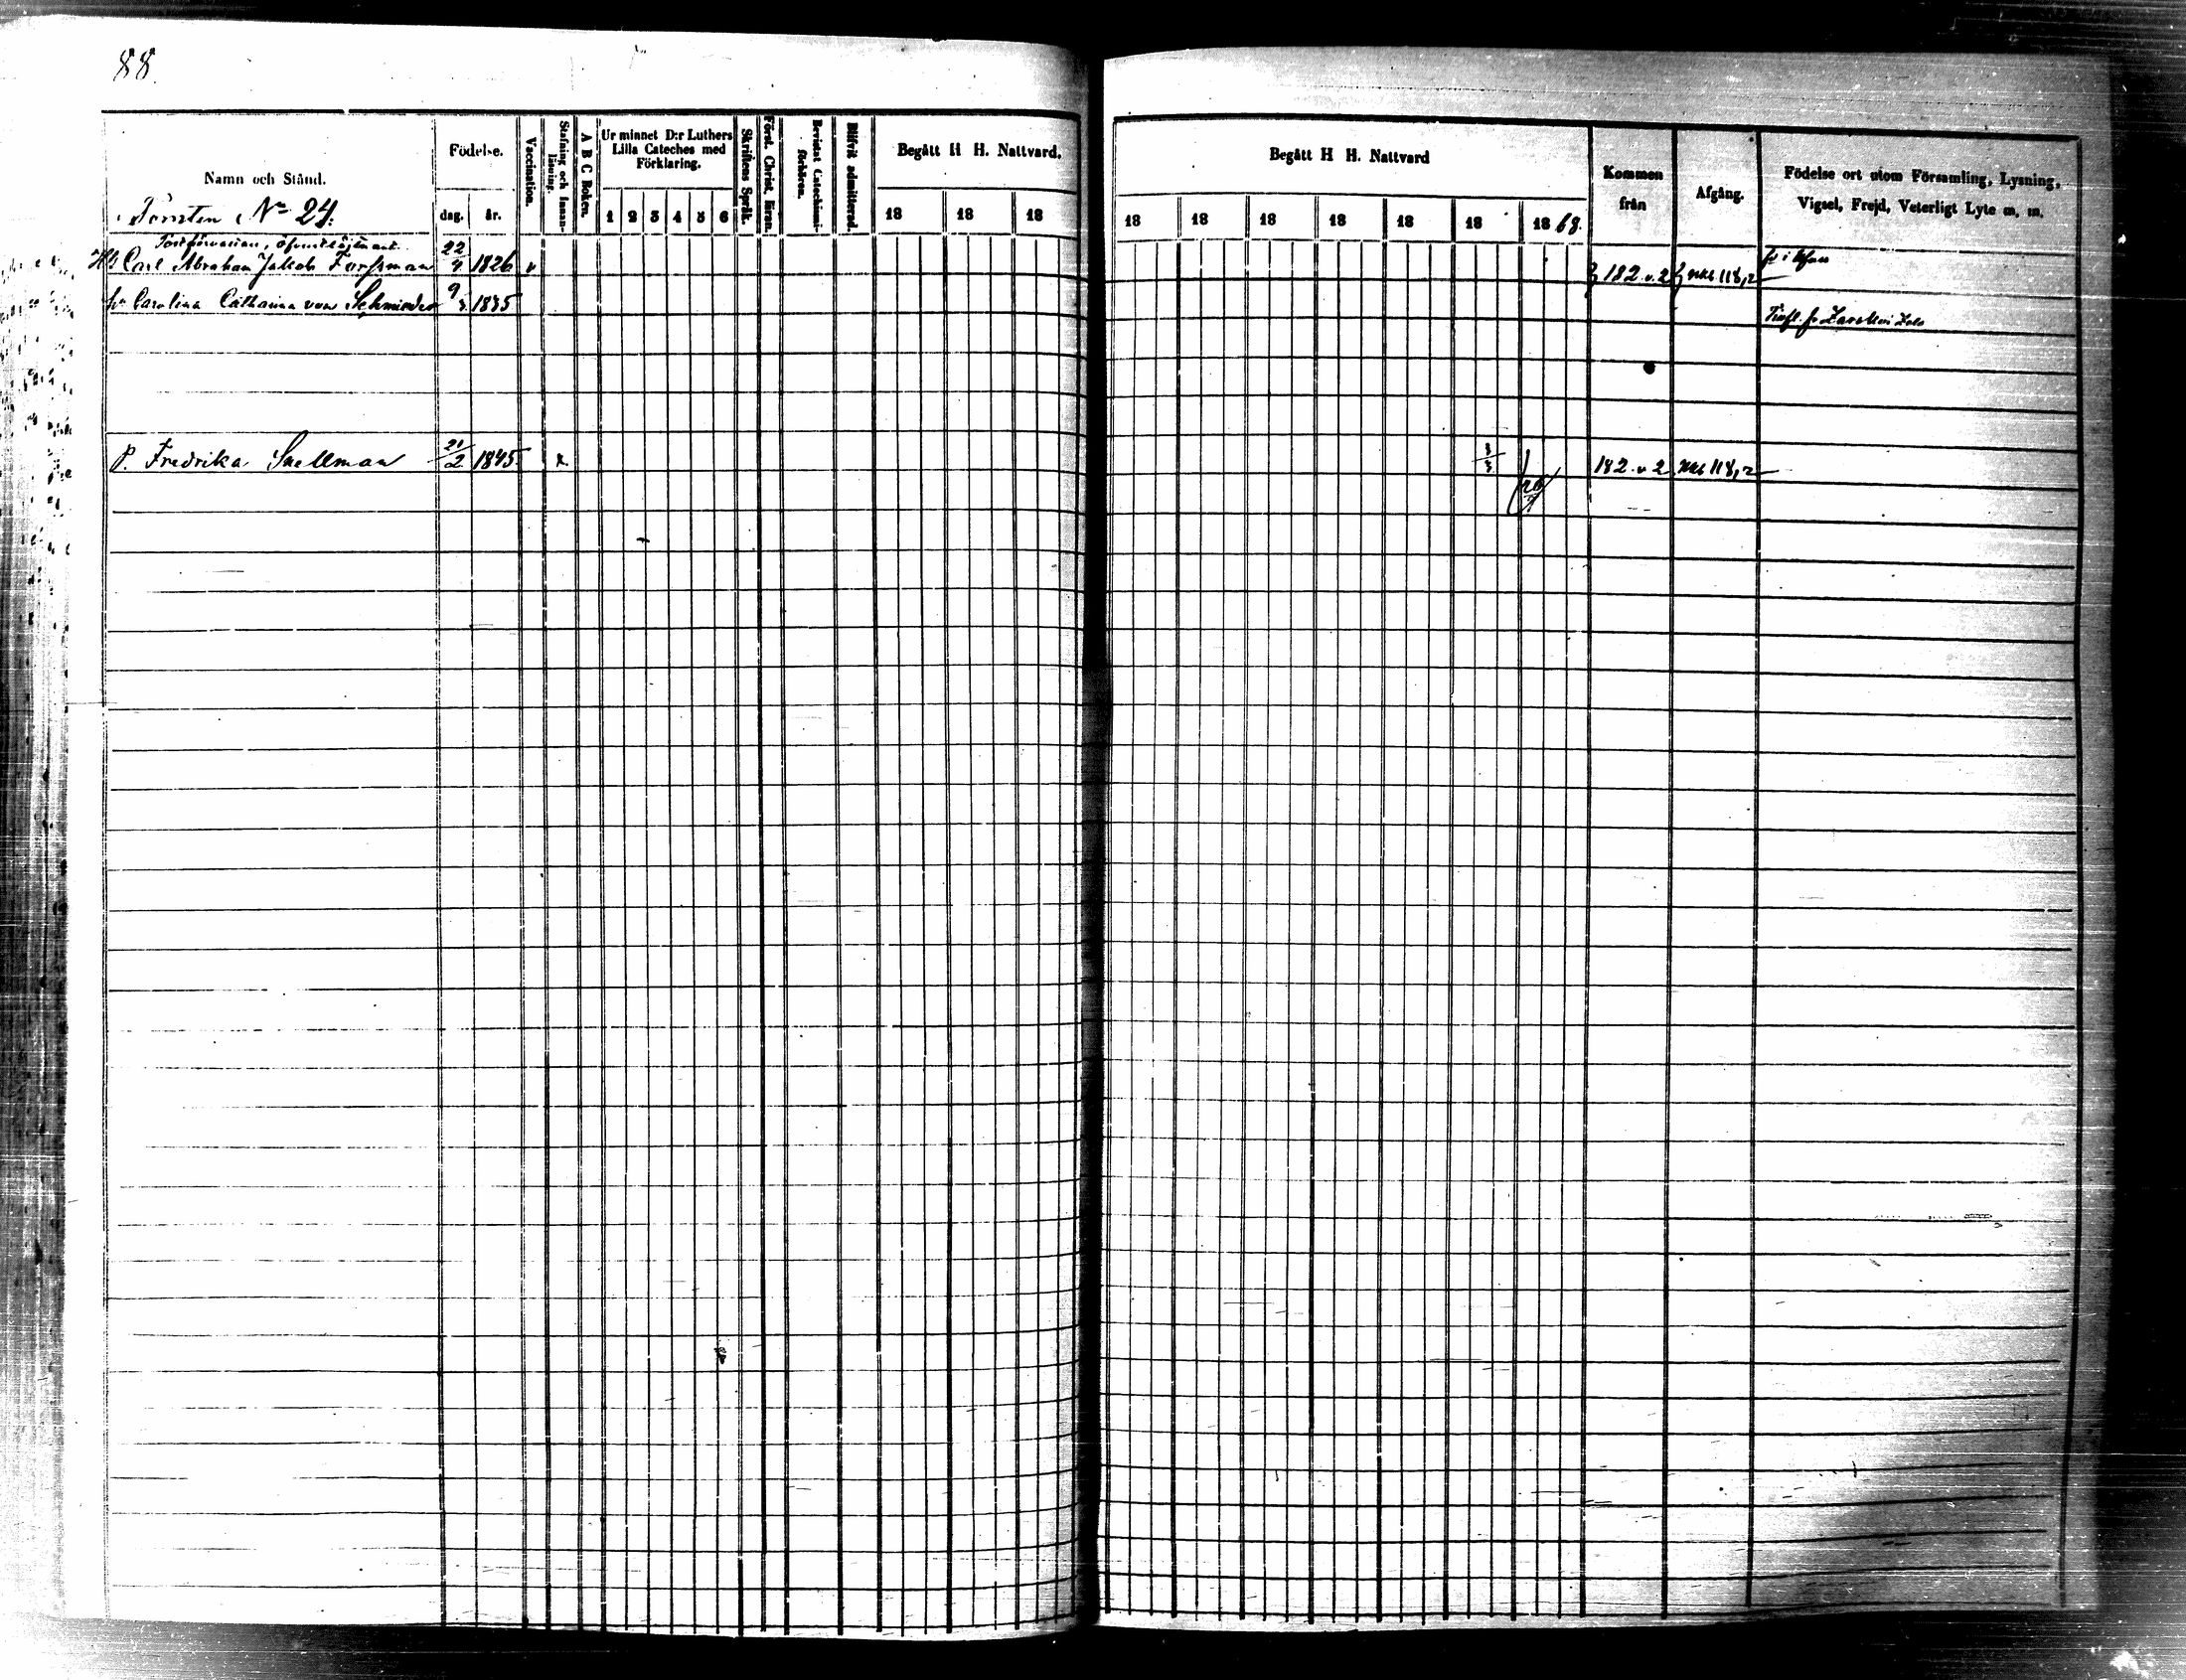 88.
Namn och Stånd.
Födelse.
dag.
år.
Vaccination.
Stafning och Innanläsning.
A B C Boken.
Ur minnet D:r Luthers Lilla Cateches med Förklaring.
1 2 3 4 5 6
Skriftens Språk.
Först. Christ. läran.
Bevistat Catechismi-förhören.
Blifvit admitterad.
Begått H H. Nattvard.
18 18 18
Begått H H. Nattvard
18 18 18 18 18 18 1868.
Kommen från
Afgång.
Födelse ort utom Församling, Lysning, Vigsel, Frejd, Veterligt Lyte m. m.
Tomten No 24.
Carl Abraham Jakob Forssman 22/4 1826 v 182 v. 2 nkb 118,2
hu Carolina Catharina von Schmiedes 9/3 1835
P. Fredrika Snellman 21/2 1845 x 3/3 182 v 2 nkb 118,2